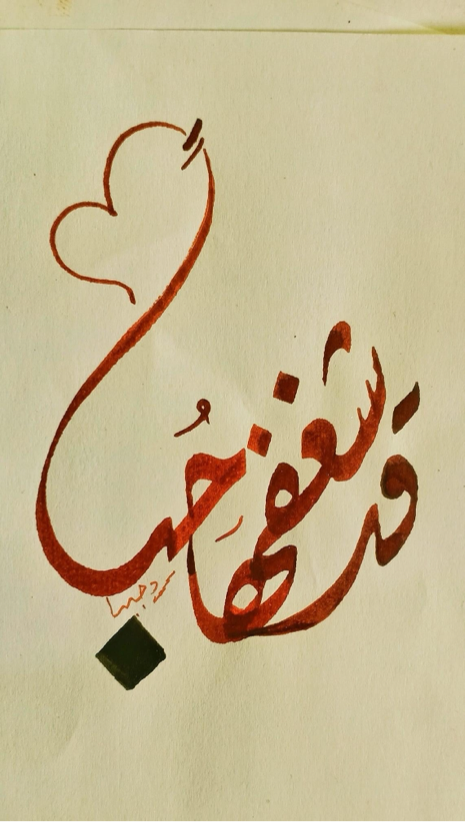 قد شغفها حُبًّا